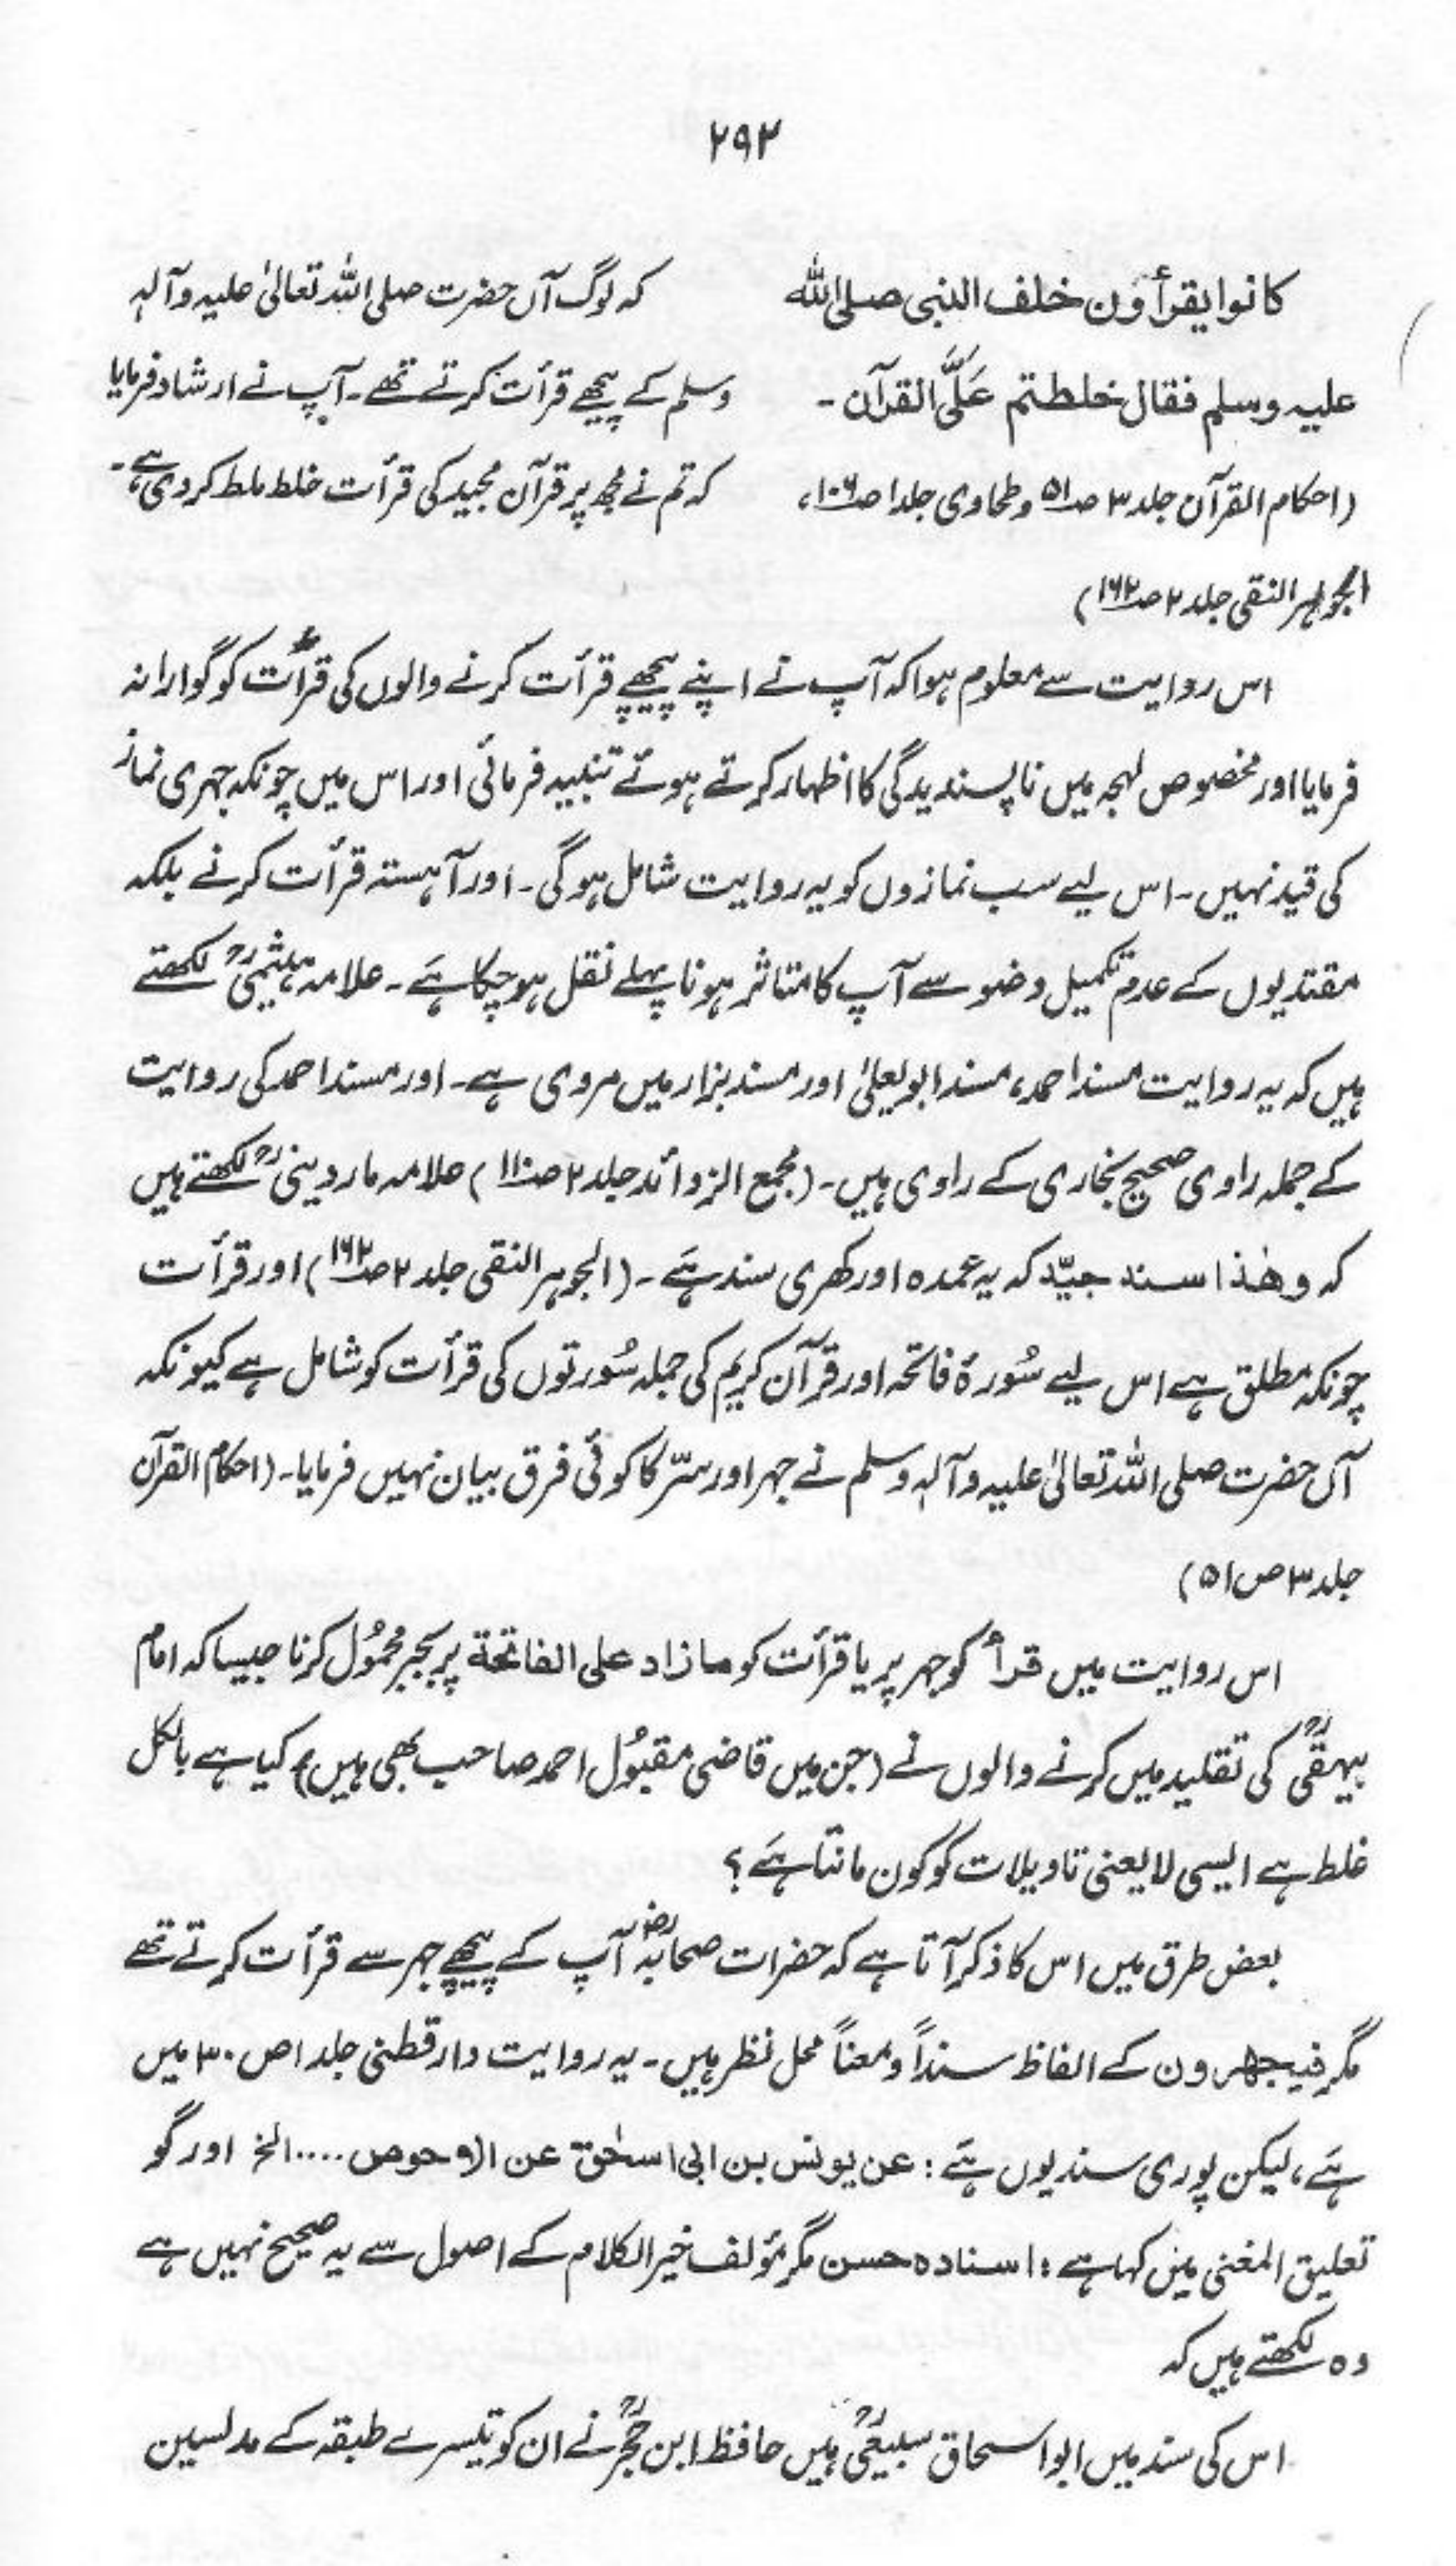 ۲۹۲
کانوا یقرأون خلف النبی صلی اللہ
علیہ وسلم فقال خلطتم عَلَیَّ القرآن۔
(احکام القرآن جلد ۳ صـ۵۱ وطحاوی جلد۱ صـ۱۰۶،
الجوہر النقی جلد ۲ صـ۱۶۲)
کہ لوگ آں حضرت صلی اللہ تعالیٰ علیہ وآلہٖ
وسلم کے پیچھے قرأت کرتے تھے۔ آپ نے ارشاد فرمایا
کہ تم نے مجھ پر قرآن مجید کی قرأت خلط ملط کر دی ہے۔
اس روایت سے معلوم ہوا کہ آپ نے اپنے پیچھے قرأت کرنے والوں کی قرأت کو گوارا نہ
فرمایا اور مخصوص لہجہ میں ناپسندیدگی کا اظہار کرتے ہوئے تنبیہ فرمائی اور اس میں چونکہ جہری نماز
کی قید نہیں۔ اس لیے سب نمازوں کو یہ روایت شامل ہوگی۔ اور آہستہ قرأت کرنے بلکہ
مقتدیوں کے عدم تکمیل وضو سے آپ کا متاثر ہونا پہلے نقل ہو چکا ہے۔ علامہ ہیثمیؒ لکھتے
ہیں کہ یہ روایت مسند احمد، مسند ابو یعلیٰ اور مسند بزار میں مروی ہے۔ اور مسند احمد کی روایت
کے جملہ راوی صحیح بخاری کے راوی ہیں۔ (مجمع الزوائد جلد ۲ صـ۱۱۰) علامہ ماردینیؒ لکھتے ہیں
کہ وھٰذا سند جیّد کہ یہ عمدہ اور کھری سند ہے۔ (الجوہر النقی جلد ۲ صـ۱۶۲) اور قرأت
چونکہ مطلق ہے اس لیے سُورۂ فاتحہ اور قرآن کریم کی جملہ سُورتوں کی قرأت کو شامل ہے کیونکہ
آں حضرت صلی اللہ تعالیٰ علیہ وآلہٖ وسلم نے جہر اور سّر کا کوئی فرق بیان نہیں فرمایا۔ (احکام القرآن
جلد ۳ ص ۵۱)
اس روایت میں قرأ کو جہر پر یا قرأت کو مازاد علی الفاتحة پر بجبر محمُول کرنا جیسا کہ امام
بیہقیؒ کی تقلید میں کرنے والوں نے (جن میں قاضی مقبُول احمد صاحب بھی ہیں) کیا ہے بالکل
غلط ہے ایسی لایعنی تاویلات کو کون مانتا ہے؟
بعض طرق میں اس کا ذکر آتا ہے کہ حضرات صحابہؓ آپ کے پیچھے جہر سے قرأت کرتے تھے
مگر فیجھرون کے الفاظ سنداً ومعناً محل نظر ہیں۔ یہ روایت دارقطنی جلد ۱ ص ۱۳۰ میں
ہے، لیکن پوری سند یوں ہے: عن یونس بن ابی اسحٰق عن ابی الاحوص .....الخ اور گو
تعلیق المغنی میں کہا ہے: اسنادہ حسن مگر مؤلف خیر الکلام کے اصول سے یہ صحیح نہیں ہے
وہ لکھتے ہیں کہ
اس کی سند میں ابو اسحاق سبیعیؒ ہیں حافظ ابن حجرؒ نے ان کو تیسرے طبقہ کے مدلسین